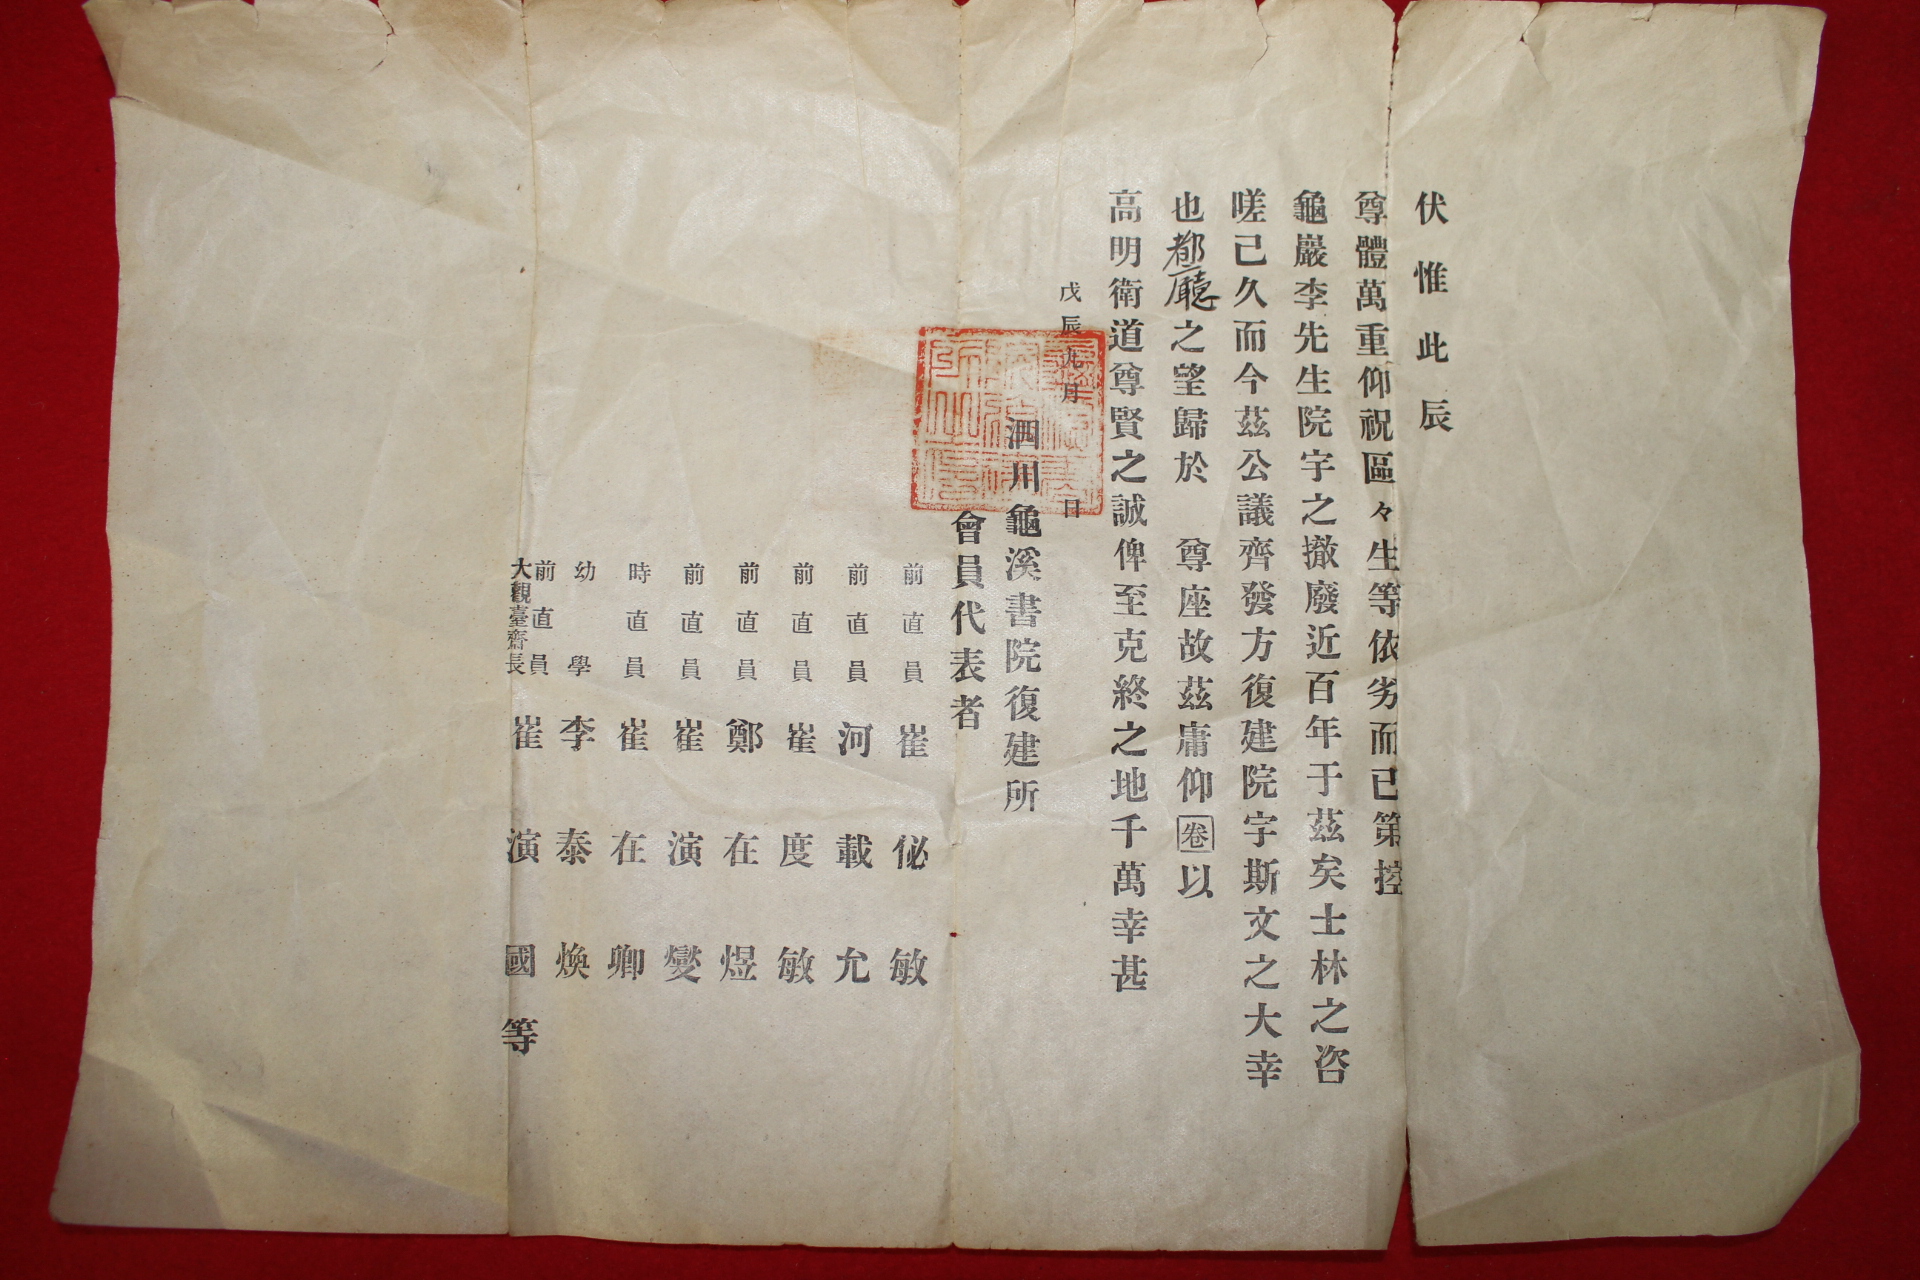 伏惟此辰
尊體萬重仰祝區々生等依劣而已第控
龜巖李先生院宇之撤廢近百年于茲矣士林之咨
嗟已久而今茲公議齊發方復建院宇斯文之大幸
也都廳之望歸於 尊座故茲庸仰卷以
高明衛道尊賢之誠俾至克終之地千萬幸甚
戊辰九月 日
泗川龜溪書院復建所
會員代表者
前直員 崔佖敏
前直員 河載允
前直員 崔度敏
前直員 鄭在煜
前直員 崔演燮
時直員 崔在卿
幼學 李泰煥
前直員
大觀臺齋長 崔演國 等